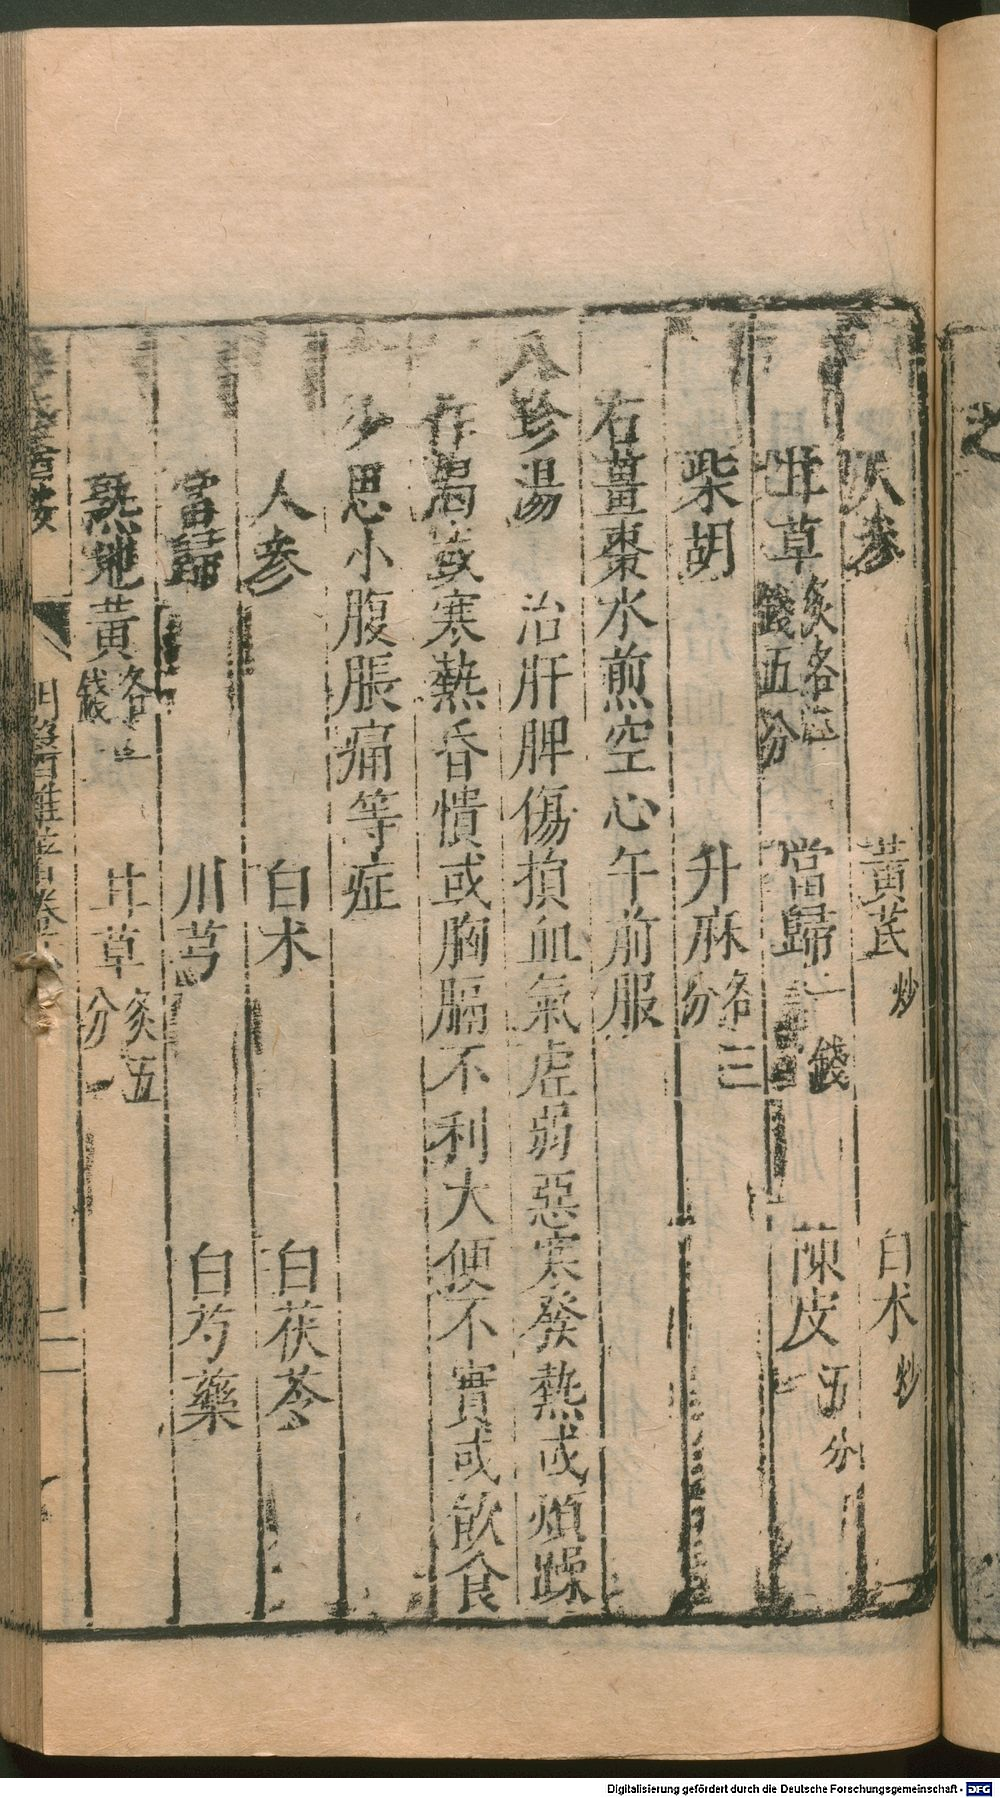 人參　黃芪炒　白朮炒
甘草炙各一錢五分　當歸一錢　陳皮五分
柴胡　升麻各三分
右薑棗水煎空心午前服
八珍湯　治肝脾傷損血氣虛弱惡寒發熱或煩躁
作渴或寒熱昏憒或胸膈不利大便不實或飲食
少思小腹脹痛等症
人參　白朮　白茯苓
當歸　川芎　白芍藥
熟地黃各一錢　甘草炙五分
Digitalisierung gefördert durch die Deutsche Forschungsgemeinschaft - DFG